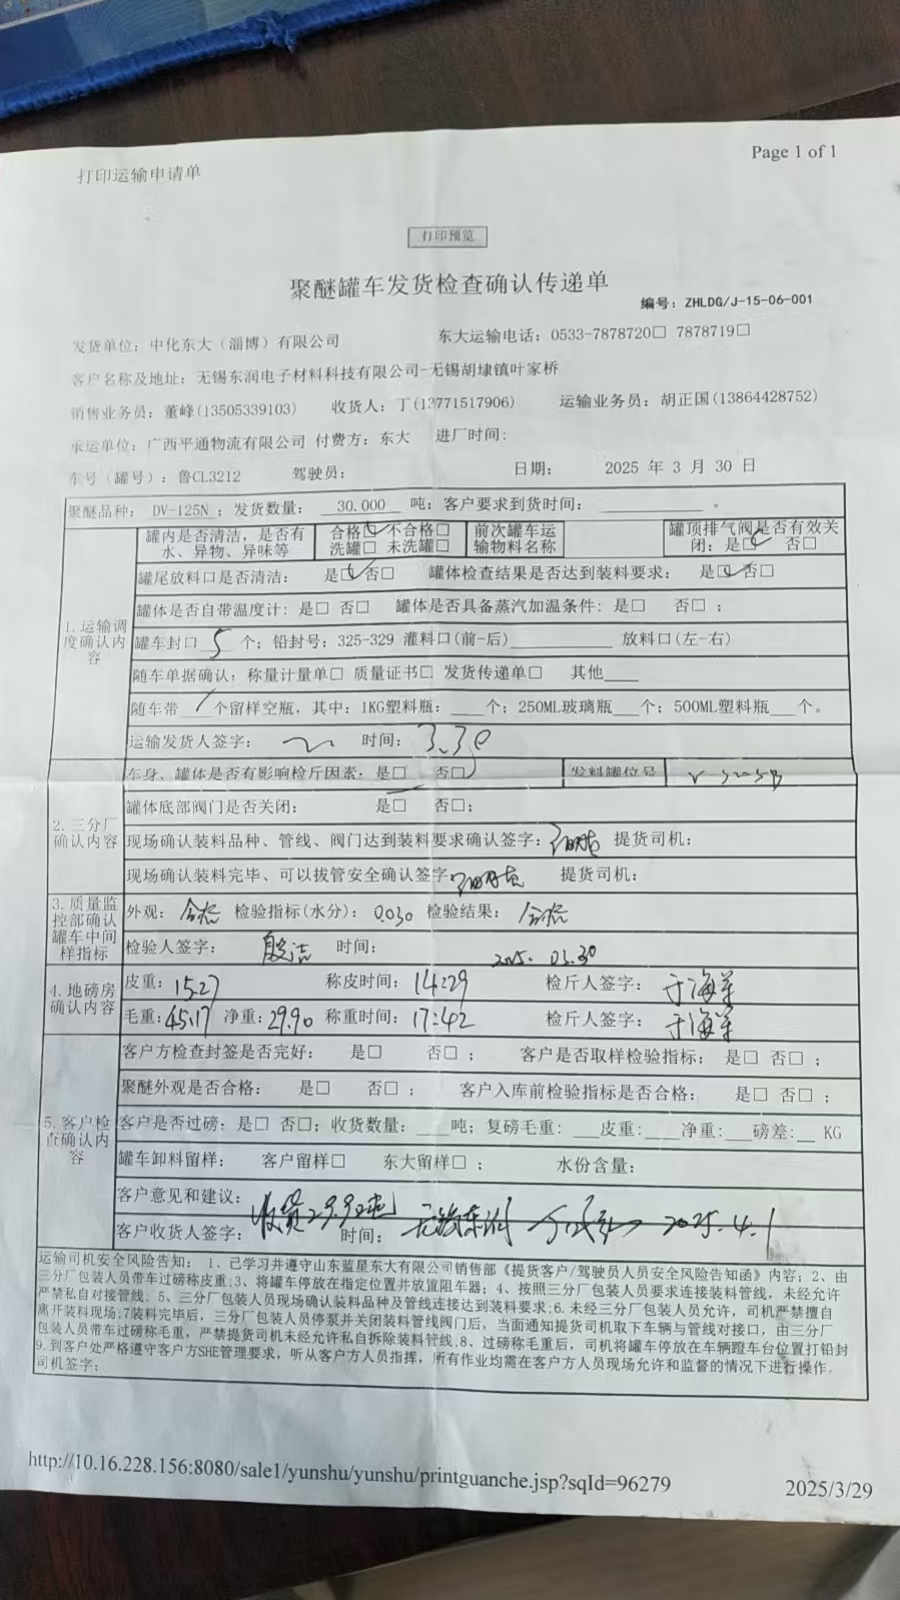 打印运输申请单
Page 1 of 1
打印预览
聚醚罐车发货检查确认传递单
编号：ZHLDG/J-15-06-001
发货单位：中化东大（淄博）有限公司 东大运输电话：0533-7878720□ 7878719□
客户名称及地址：无锡东润电子材料科技有限公司-无锡胡埭镇叶家桥
销售业务员：董峰(13505339103) 收货人：丁(13771517906) 运输业务员：胡正国(13864428752)
承运单位：广西平通物流有限公司 付费方：东大 进厂时间：
车号（罐号）：鲁CL3212 驾驶员： 日期： 2025 年 3 月 30 日
聚醚品种： DV-125N ；发货数量： 30.000 吨；客户要求到货时间：________。
1.运输调度确认内容
罐内是否清洁，是否有水、异物、异味等 合格□ 不合格□ 洗罐□ 未洗罐□ 前次罐车运输物料名称 罐顶排气阀是否有效关闭：是□ 否□
罐尾放料口是否清洁： 是□ 否□ 罐体检查结果是否达到装料要求： 是□ 否□
罐体是否自带温度计：是□ 否□ 罐体是否具备蒸汽加温条件：是□ 否□；
罐车封口 5 个；铅封号：325-329 灌料口(前-后)________ 放料口(左-右)
随车单据确认：称量计量单□ 质量证书□ 发货传递单□ 其他___
随车带 ___个留样空瓶，其中：1KG塑料瓶：___个；250ML玻璃瓶___个；500ML塑料瓶___个。
运输发货人签字： 时间：3.30
2.三分厂确认内容
车身、罐体是否有影响检斤因素：是□ 否□ 发料罐位号
罐体底部阀门是否关闭： 是□ 否□；
现场确认装料品种、管线、阀门达到装料要求确认签字： 提货司机：
现场确认装料完毕、可以拔管安全确认签字： 提货司机：
3.质量监控部确认罐车中间样指标
外观：合格 检验指标(水分)：0.030 检验结果：合格
检验人签字：殷洁 时间： 2025.03.30
4.地磅房确认内容
皮重：15.27 称皮时间：14:29 检斤人签字：于海军
毛重：45.17 净重：29.90 称重时间：17:42 检斤人签字：于海军
5.客户检查确认内容
客户方检查封签是否完好： 是□ 否□； 客户是否取样检验指标： 是□ 否□；
聚醚外观是否合格： 是□ 否□； 客户入库前检验指标是否合格： 是□ 否□；
客户是否过磅：是□ 否□；收货数量：___吨；复磅毛重：___皮重：___净重：___磅差：__ KG
罐车卸料留样： 客户留样□ 东大留样□； 水份含量：
客户意见和建议：收货29.90吨
客户收货人签字： 时间： 无锡东润 2025.4.1
运输司机安全风险告知： 1、己学习并遵守山东蓝星东大有限公司销售部《提货客户/驾驶员人员安全风险告知函》内容；2、由
三分厂包装人员带车过磅称皮重;3、将罐车停放在指定位置并放置阻车器；4、按照三分厂包装人员要求连接装料管线，未经允许
严禁私自对接管线；5、三分厂包装人员现场确认装料品种及管线连接达到装料要求;6.未经三分厂包装人员允许，司机严禁擅自
离开装料现场;7装料完毕后，三分厂包装人员停泵并关闭装料管线阀门后，当面通知提货司机取下车辆与管线对接口，由三分厂
包装人员带车过磅称毛重，严禁提货司机未经允许私自拆除装料管线.8、过磅称毛重后，司机将罐车停放在车辆蹬车台位置打铅封
9.到客户处严格遵守客户方SHE管理要求，听从客户方人员指挥，所有作业均需在客户方人员现场允许和监督的情况下进行操作。
司机签字：
http://10.16.228.156:8080/sale1/yunshu/yunshu/printguanche.jsp?sqId=96279
2025/3/29